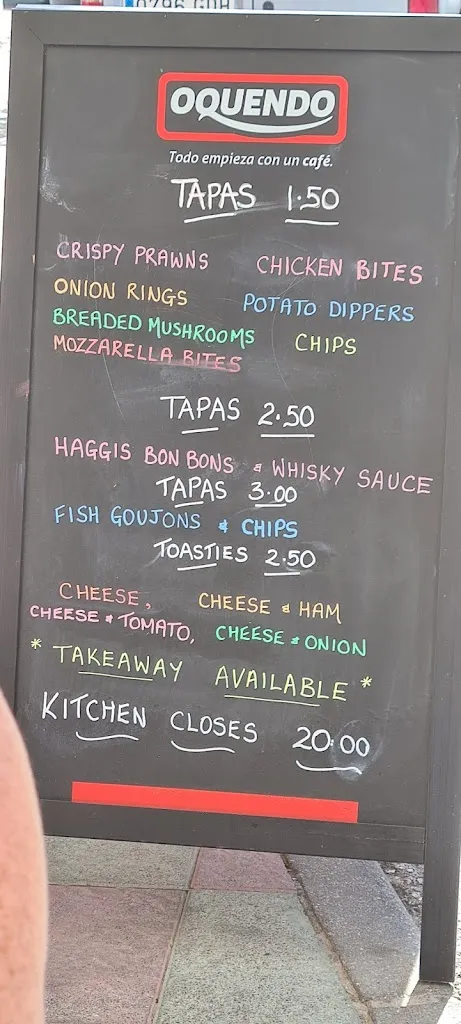 0796 GDH
OQUENDO
Todo empieza con un café.
TAPAS 1.50
CRISPY PRAWNS CHICKEN BITES
ONION RINGS POTATO DIPPERS
BREADED MUSHROOMS CHIPS
MOZZARELLA BITES
TAPAS 2.50
HAGGIS BON BONS & WHISKY SAUCE
TAPAS 3.00
FISH GOUJONS & CHIPS
TOASTIES 2.50
CHEESE, CHEESE & HAM
CHEESE & TOMATO, CHEESE & ONION
* TAKEAWAY AVAILABLE *
KITCHEN CLOSES 20:00